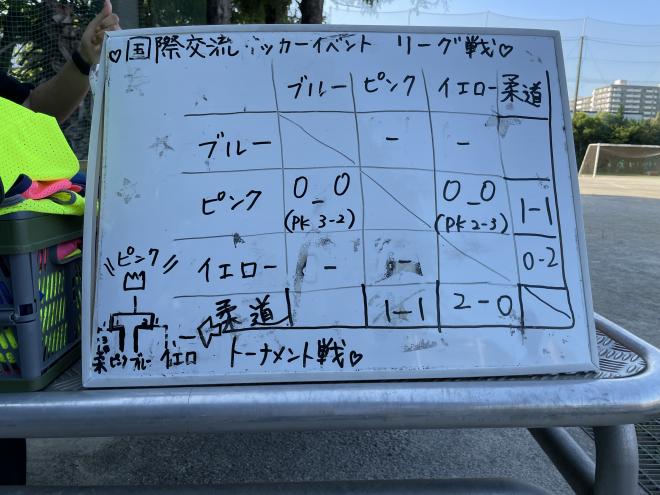 ♡国際交流 ッカーイベント リーグ戦♡
ブルー ピンク イエロー 柔道
ブルー - -
ピンク 0_0 0_0 1-1
(PK 3-2) (PK 2-3)
イエロー - - 0-2
柔道 1-1 2-0
\\ピンク//
柔 ピン ブルー イエロ トーナメント戦♡